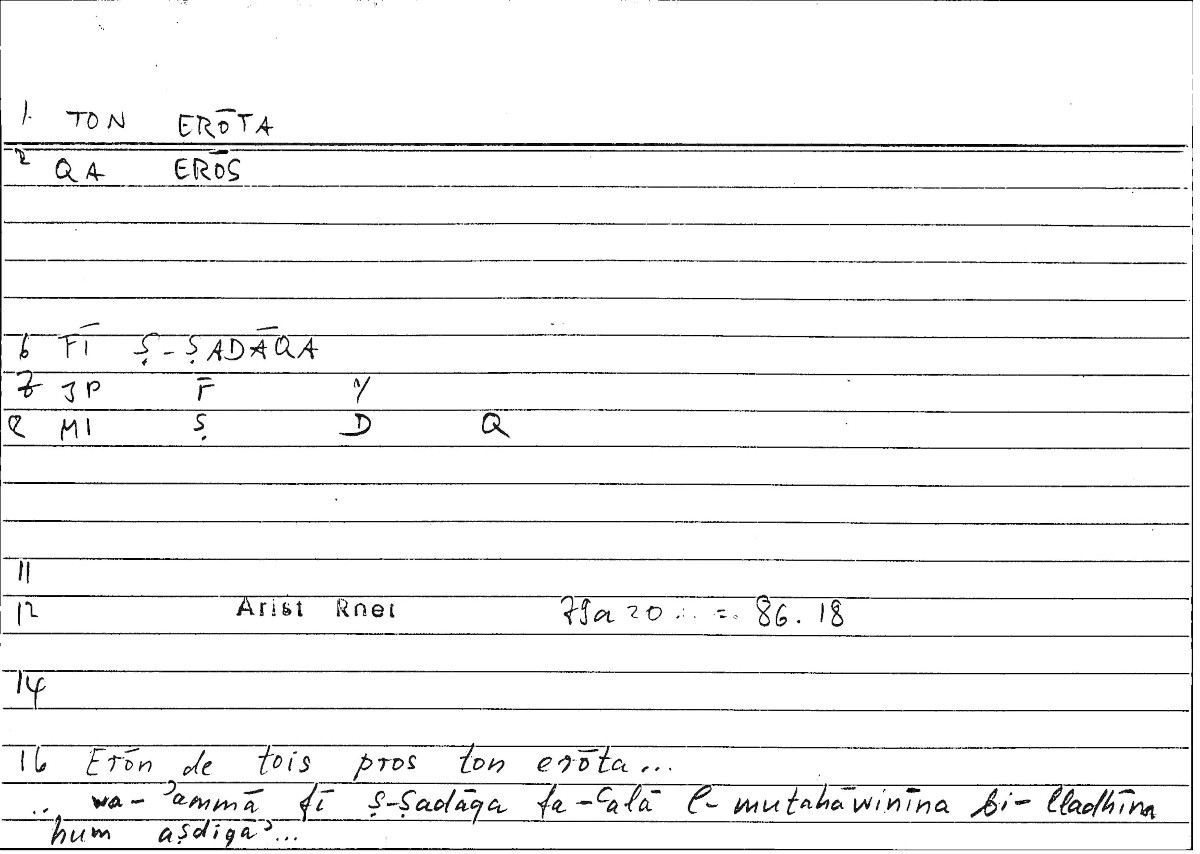 1. TON ERŌTA
2 QA ERŌS
6 FĪ Ṣ-ṢADĀQA
7 JP F Y
8 MI Ṣ D Q
11
12 Arist Rhet 79a20 ... = 86.18
14
16 Erōn de tois pros ton erōta...
.. wa-ʾammā fī ṣ-ṣadāqa fa-ʿalā l-mutahāwinīna bi-lladhīna
hum aṣdiqāʾ...